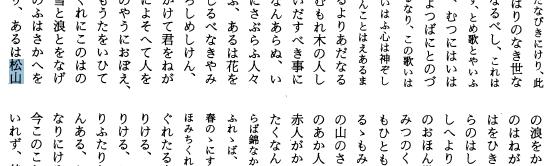 たなびきにけり、此
ばりのなき世な
なるべし、これは
す、とめ歌とやいふ
、むつにはいは
よつばにとのづ
なり、この歌いは
いはふ心は神ぞし
んことはえあるま
るよりあだなる
むもれ木の人し
いだすべき事に
なんあらぬ、い
にさぶらふ人々
ふ、あるは花を
しるべなきやみ
らしめしけん、
かけて君をねが
によそへて人を
のやうにおぼえ、
もうたをいひて
くれにこのはの
雪と浪とをなげ
のふはさかへを
り、あるは松山
の浪をか
のはねが
はをひき
らのはし
しへより
のおほん
みつのく
もひとも
るゝもみ
の山のさ
のあか人
赤人がか
たくなん
らば錦なか
ふれゝば、
春のゝにす
ほみちくれ
ぐれたる
りける、
りける、
りふたり
んある、
なりにけ
今このこ
いれず、